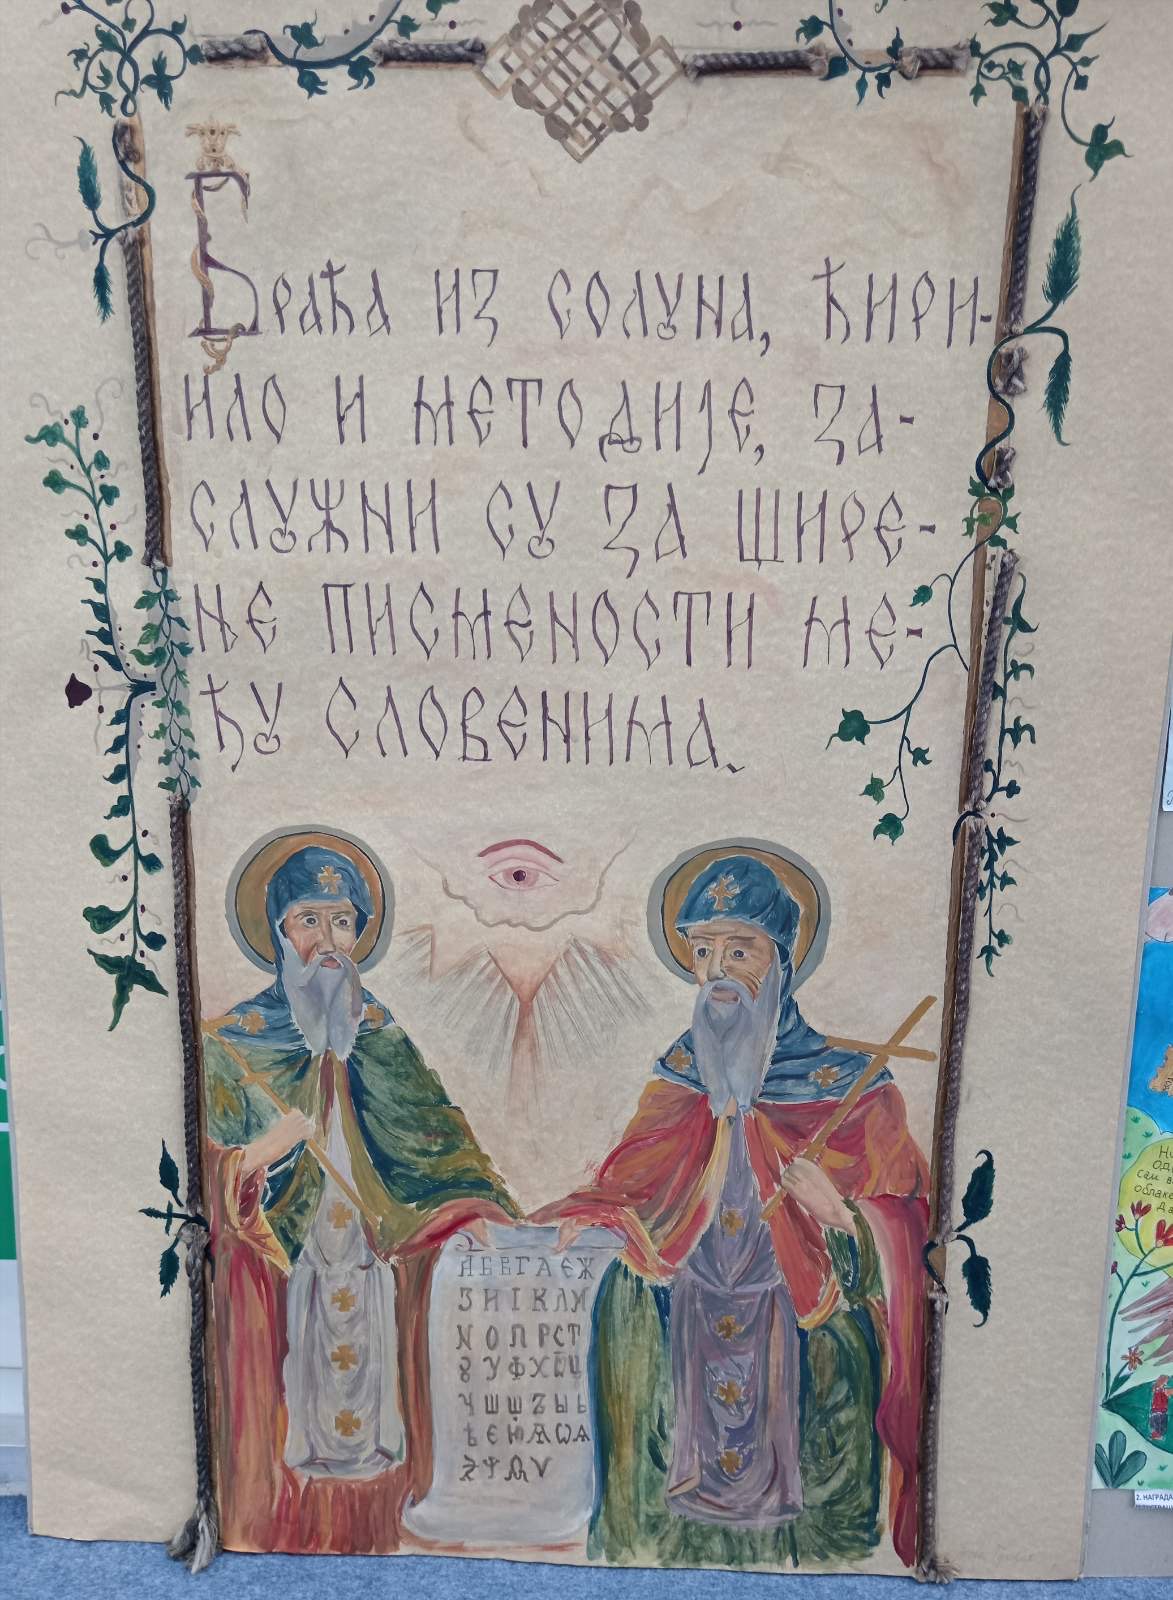 Браћа из солуна, Ћири-
ило и Методије, за-
служни су за шире-
ње писмености ме-
ђу Словенима.
А Б В Г Д Є Ж
З И І К Л М
N О П Р С Т
Ȣ У Ф Х Ѿ Ц
Ч Ш Щ Ъ Ы Ь
Ѣ Є Ю Ѫ Ѡ Ѧ
Ѯ Ѱ Ѳ Ѵ
2. НАГРАДА